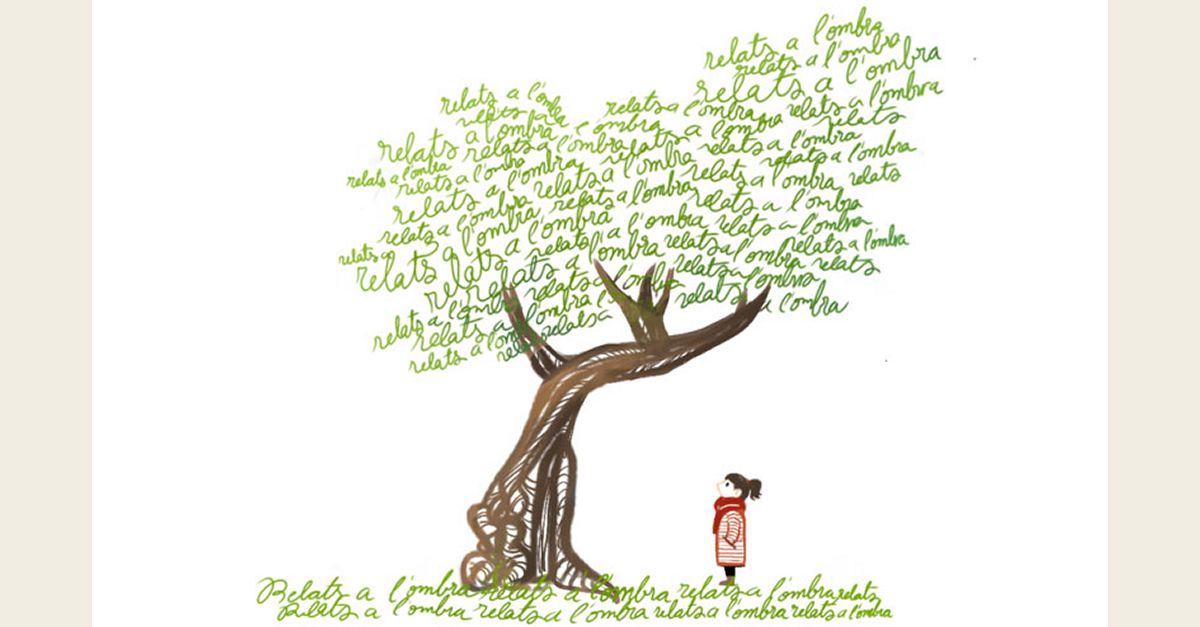 relats a l'ombra
relats a l'ombra
relats a l'ombra
relats a l'omb
relats a l'ombra relats a l'ombra
relats a
relats a l'ombra relats
relats a l'ombra relats a l'ombra relats a l'ombra
relats a l'ombra relats a l'ombra
relats a l'ombra relats a l'ombra relats a l'ombra
relats a l'ombra relats a l'ombra relats a l'ombra relats
relats a l'ombra relats a l'ombra relats a l'ombra
relats a l'ombra relats a l'ombra
relats a
relats a l'ombra relats a l'ombra relats a l'ombra
relats a l'ombra relats a l'ombra relats a l'ombra
relats a l'ombra relats a l'ombra relats
relats a l'ombra relats a l'ombra relats a l'ombra
relats a l'ombra relats a l'ombra
relats a l'om relats relats a
Relats a l'ombra relats a l'ombra relats a l'ombra relats
Relats a l'ombra relats a l'ombra relats a l'ombra relats a l'ombra